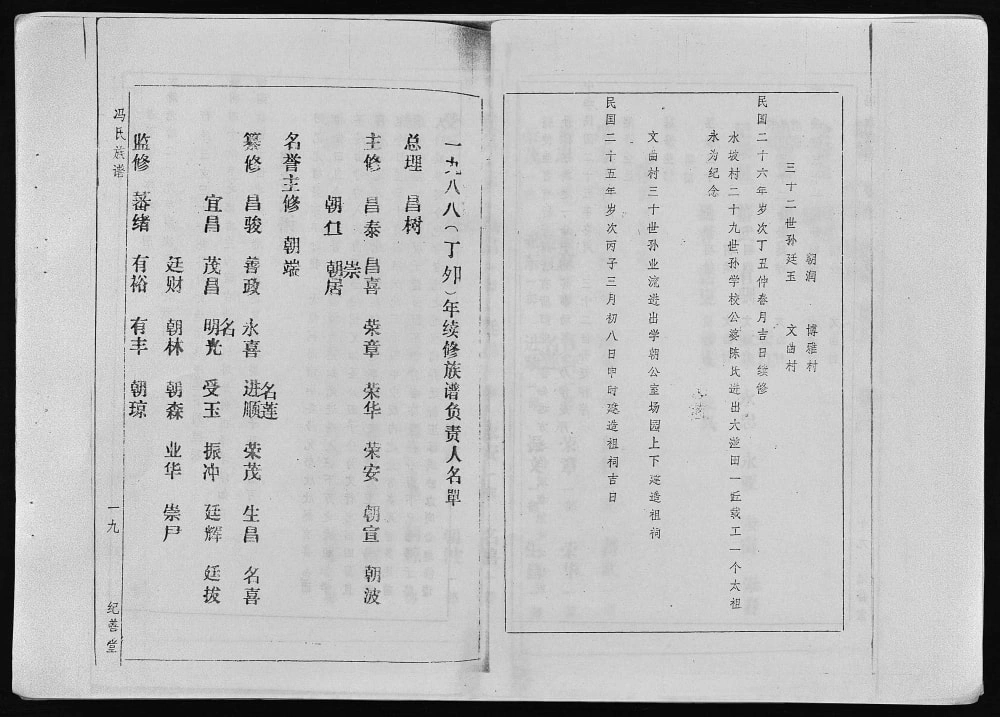 朝润　博雅村
三十二世孙廷玉　文曲村
民国二十六年岁次丁丑仲春月吉日续修
水坡村二十九世孙学校公婆陈氏进出六泄田一丘载工一个太祖
永为纪念
文曲村三十世孙业流进出学朝公室场园上下建造祖祠
民国二十五年岁次丙子三月初八日申时建造祖祠吉日
一九八八（丁卯）年续修族谱负责人名单
总理　昌树
主修　昌泰　昌喜　荣章　荣华　荣安　朝宣　朝波
崇
朝　朝居
名誉主修　朝端
名莲
纂修　昌骏　善政　永喜　进顺　荣茂　生昌　名喜
名
宜昌　茂昌　明光　受玉　振冲　廷辉　廷拔
廷财　朝林　朝森　业华　崇尸
监修　蕃绪　有裕　有丰　朝琼
冯氏族谱
一九
纪善堂